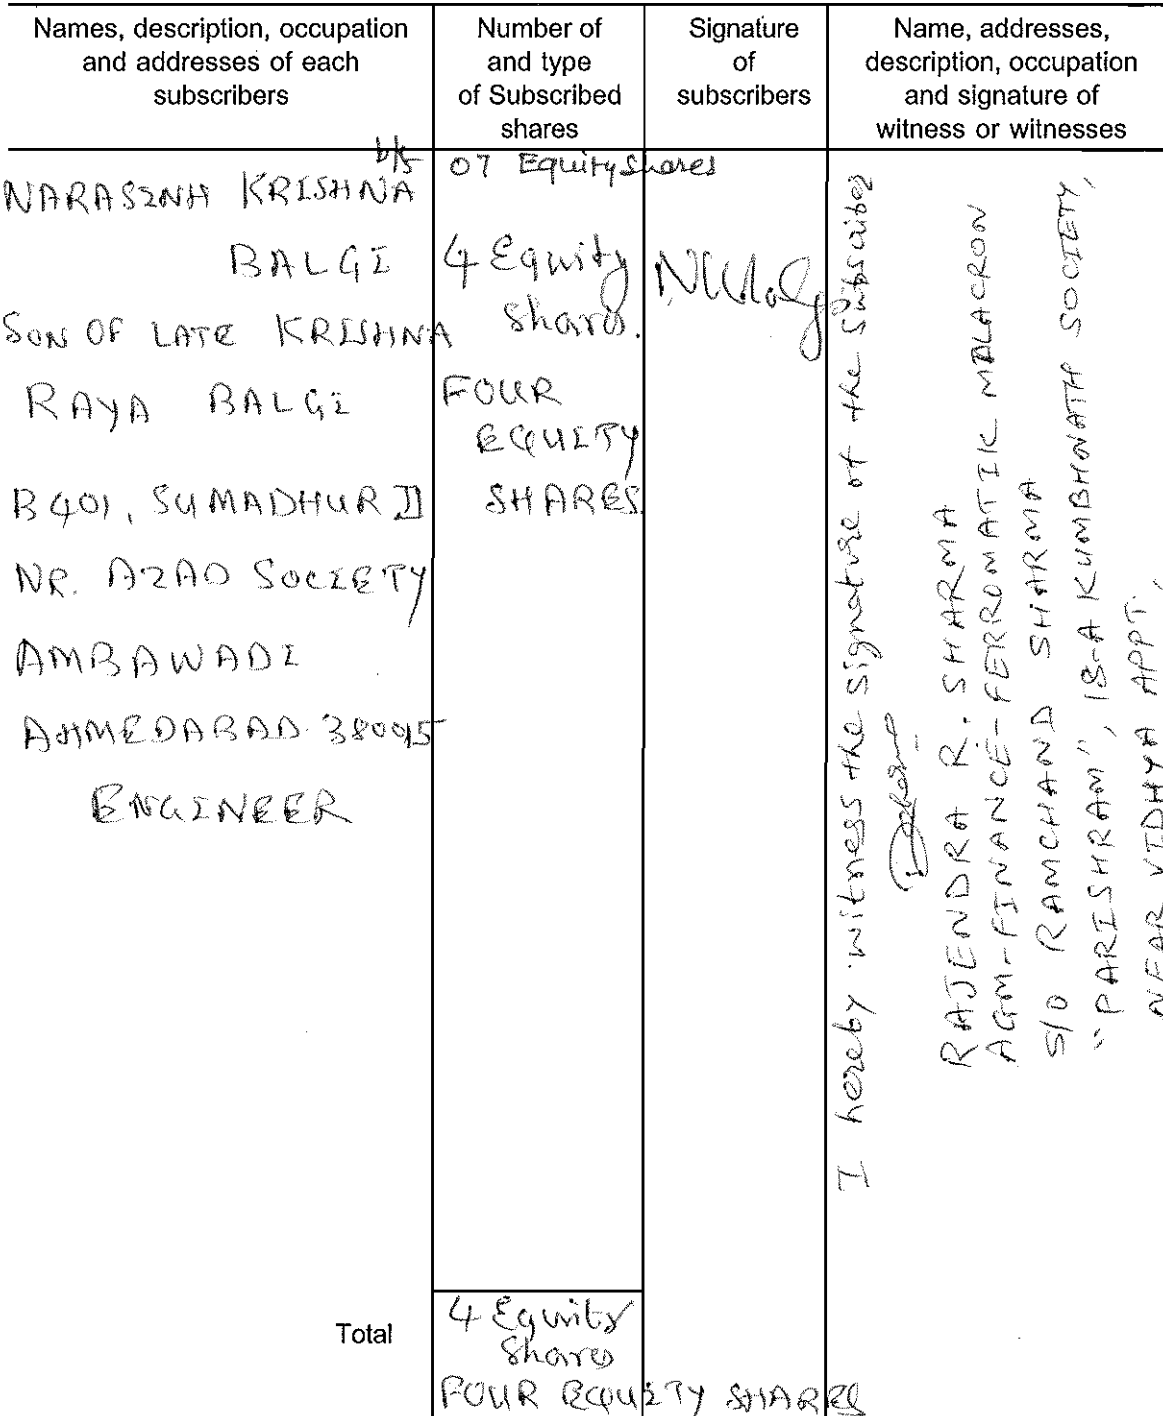 Names, description, occupation
and addresses of each
subscribers
Number of
and type
of Subscribed
shares
Signature
of
subscribers
Name, addresses,
description, occupation
and signature of
witness or witnesses
b/f 07 Equity Shares
NARASINH KRISHNA
BALGI
SON OF LATE KRISHNA
RAYA BALGI
B 401, SUMADHUR II
NR. AZAD SOCIETY
AMBAWADI
AHMEDABAD. 380015
ENGINEER
4 Equity
Shares.
FOUR
EQUITY
SHARES
I hereby witness the signature of the Subscriber
RAJENDRA R. SHARMA
AGM-FINANCE-FERROMATIK MILACRON
S/O RAMCHAND SHARMA
"PARISHRAM", 18-A KUMBHNATH SOCIETY,
NEAR VIDHYA APPT.,
Total
4 Equity
Shares
FOUR EQUITY SHARES